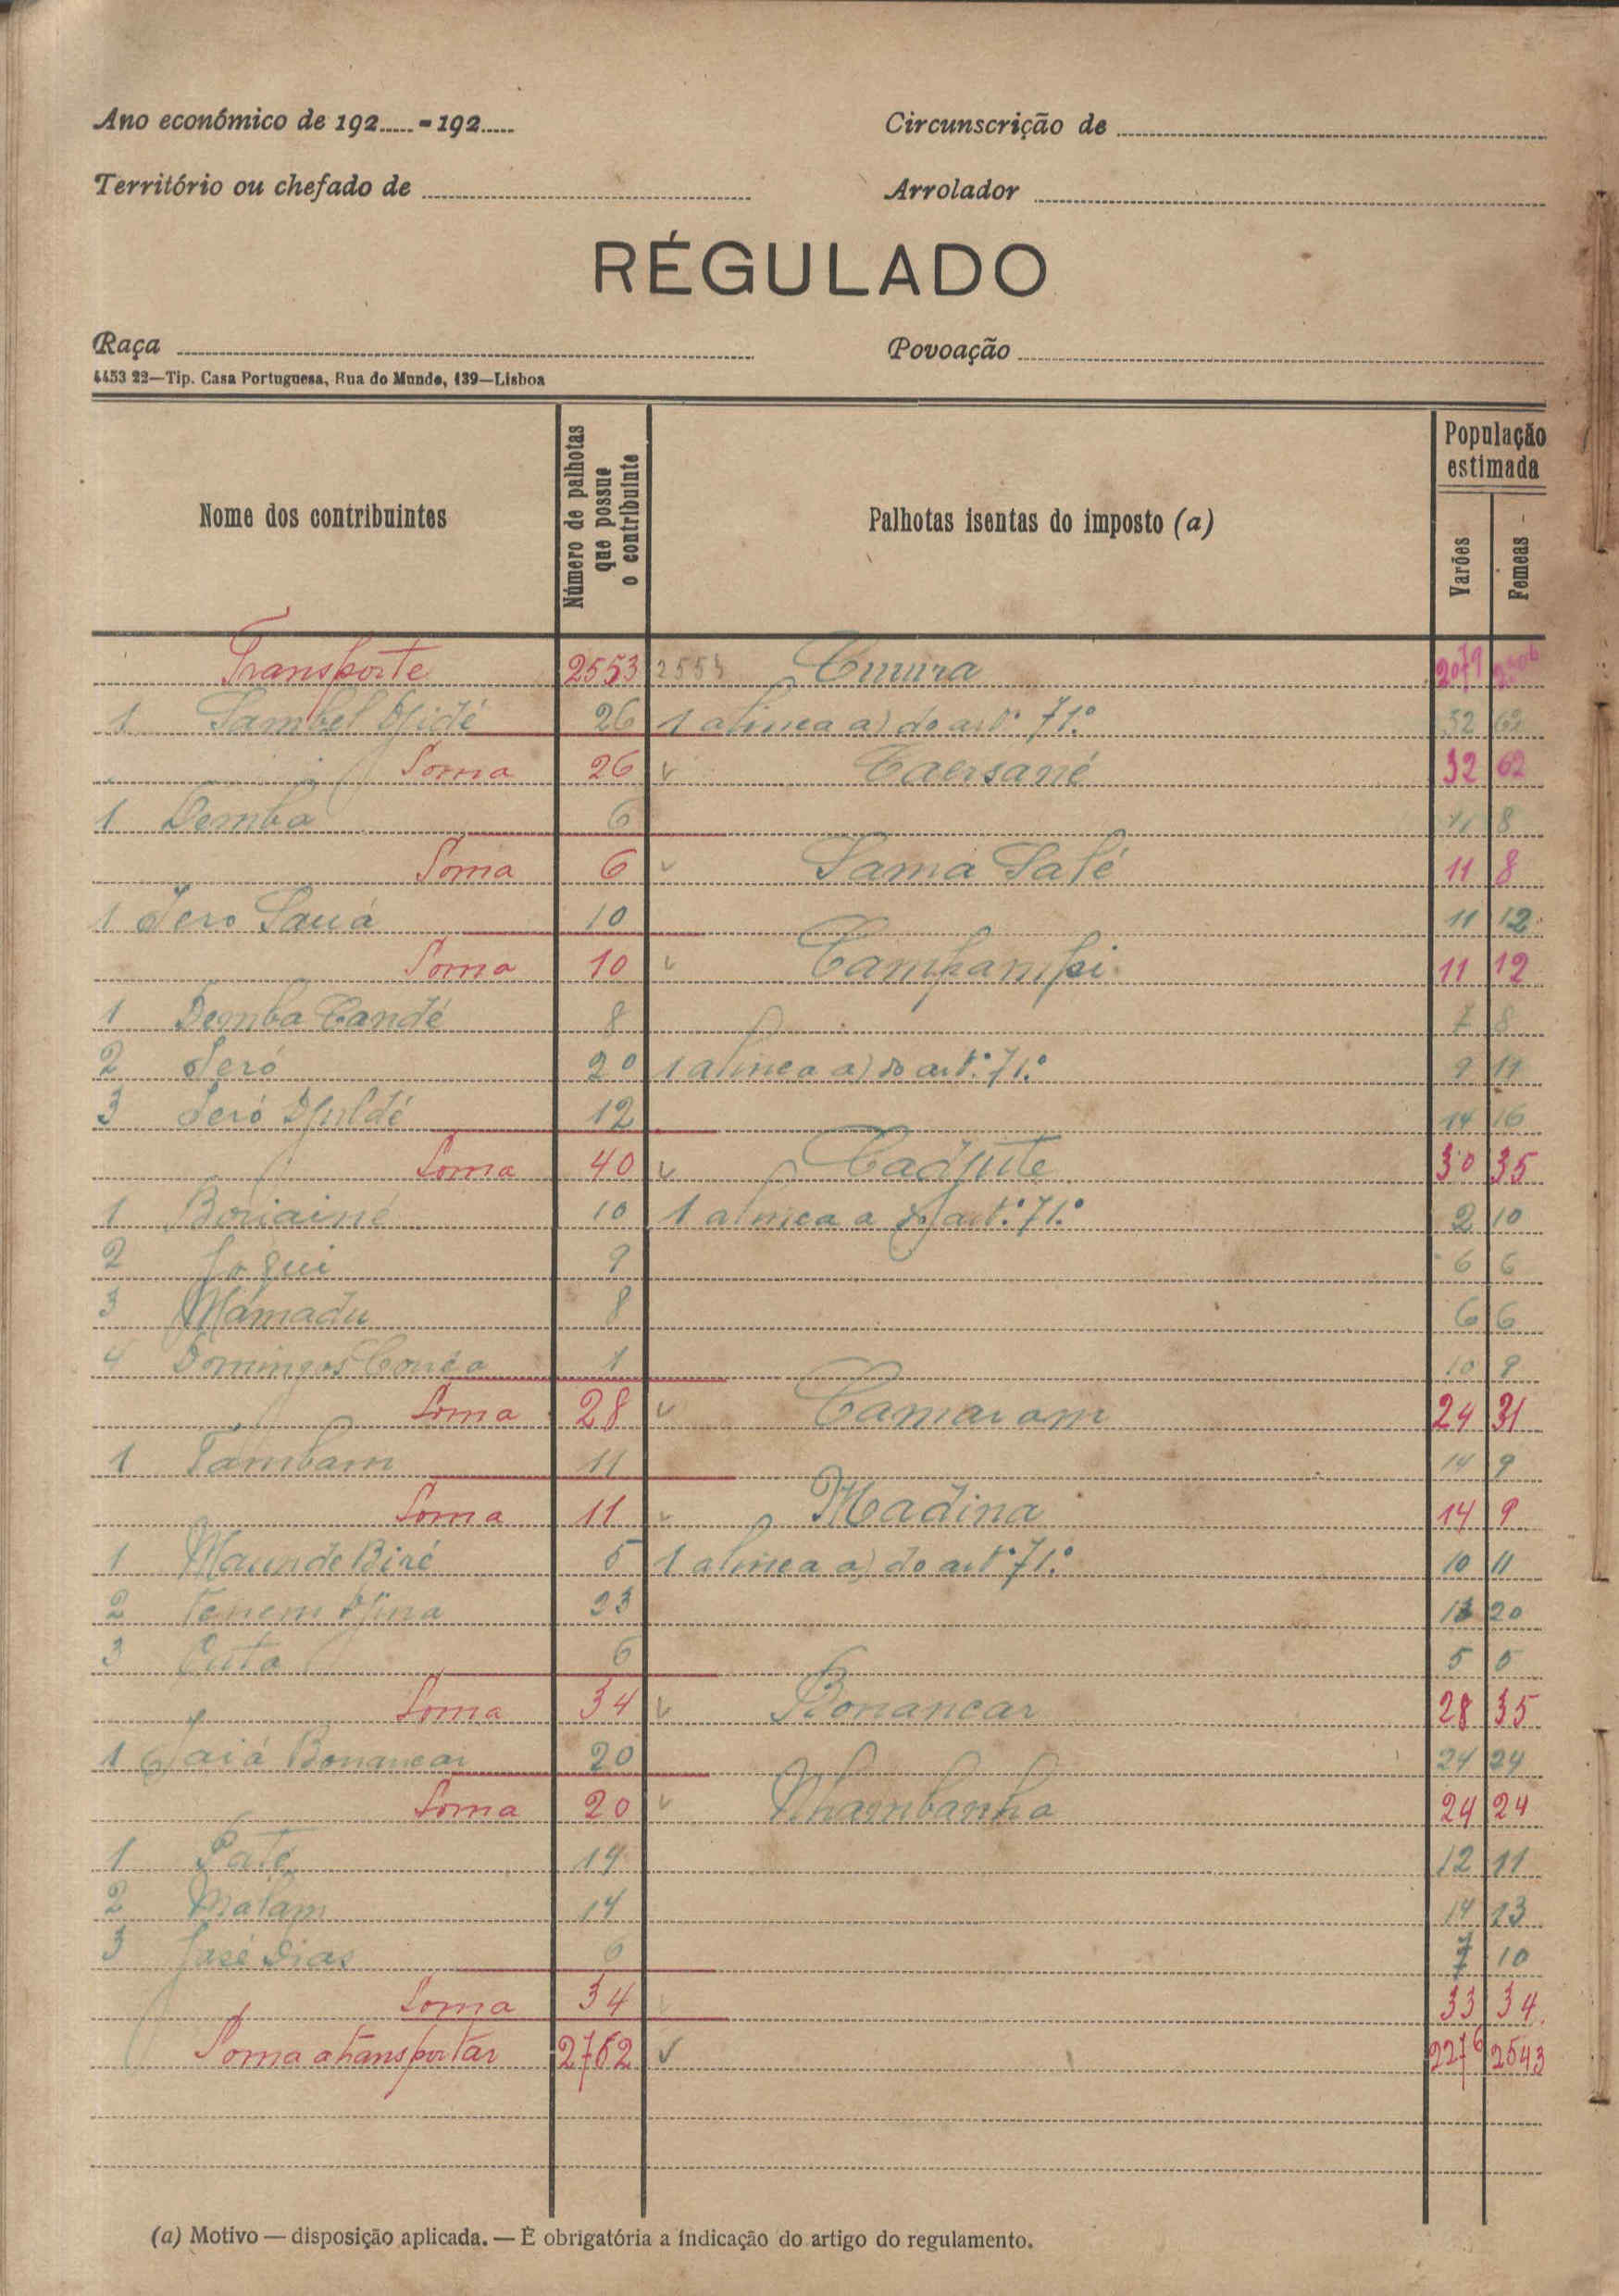 Ano económico de 192..... - 192.....
Circunscrição de
Território ou chefado de
Arrolador
RÉGULADO
Raça
Povoação
4453 22—Tip. Casa Portuguesa, Rua do Mundo, 139—Lisboa
Nome dos contribuintes
Número de palhotas que possue o contribuinte
Palhotas isentas do imposto (a)
População estimada
Varões
Femeas
Transporte 2553 2553 Cumura 2079
1 Sambel Djidé 26 1 alinea a) do artº 71.º 32 62
Soma 26 Caersané 32 62
1 Demba 6 11 8
Soma 6 Sama Salé 11 8
1 Sauá 10 11 12
Soma 10 Campampi 11 12
1 Demba Candé 8 7 8
2 Jeró 20 1 alinea a) do artº 71.º 9 11
3 Jeró Djuldé 12 14 16
Soma 40 Cadjute 30 35
1 10 1 alinea a do artº 71.º 2 10
2 9 6 6
3 Mamadu 8 6 6
4 Domingos 1 10 9
Soma 28 Camaram 24 31
1 Tambam 11 14 9
Soma 11 Madina 14 9
1 Maunde Biré 5 1 alinea a) do artº 71.º 10 11
2 Tenem Djina 23 13 20
3 6 5 5
Soma 34 Bonancar 28 35
1 Bonancar 20 24 24
Soma 20 Nhambanha 24 24
1 Paté 14 12 11
2 Malam 14 14 13
3 José Dias 6 7 10
Soma 34 33 34
Soma a transportar 2762 2276 2543
(a) Motivo — disposição aplicada. — É obrigatória a indicação do artigo do regulamento.